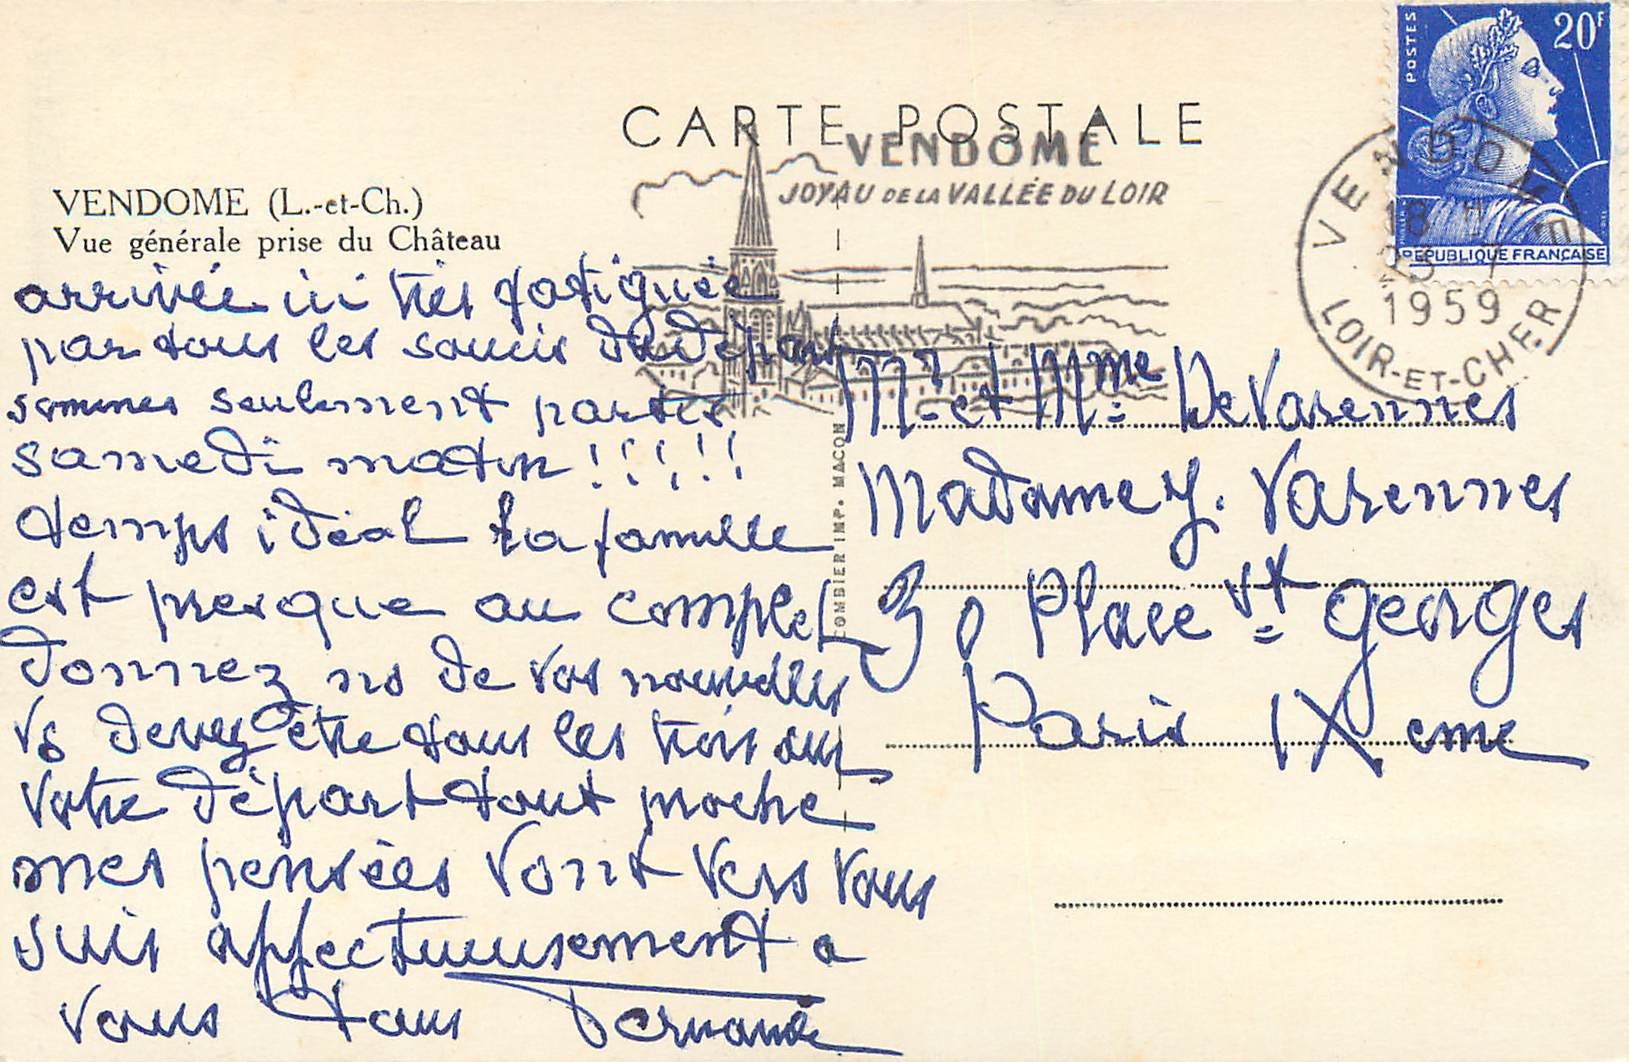 CARTE POSTALE
VENDÔME
JOYAU DE LA VALLÉE DU LOIR
POSTES
20F
REPUBLIQUE FRANÇAISE
VENDOME
18 H
1959
LOIR-ET-CHER
VENDOME (L.-et-Ch.)
Vue générale prise du Château
arrivée ici très fatiguée
par tous les soucis du départ
sommes seulement partis
samedi matin !!!!!
temps idéal la famille
est presque au complet
Donnez ns de vos nouvelles
Vs devez être tous les trois sur
votre départ tout proche
mes pensées vont vers vous
suis affectueusement a
vous tous Fernande
COMBIER IMP. MACON
Mr et Mme DeVarennes
Madame Y. Varennes
30 Place St Georges
Paris IXeme